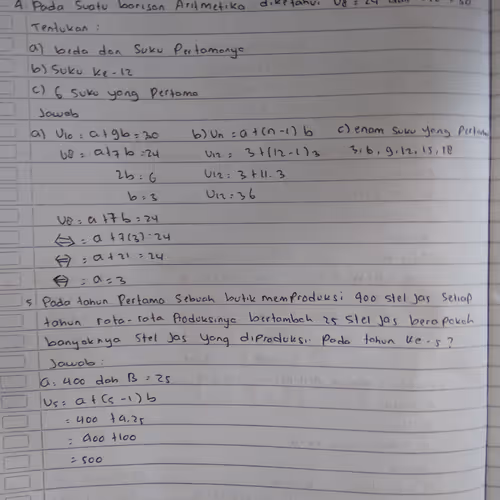 4. Pada Suatu barisan Aritmetika diketahui U8 = 24 dan = 30
Tentukan :
a) beda dan Suku Pertamanya
b) Suku ke-12
c) 6 Suku yang Pertama
Jawab
a) U10 = a + 9b = 30 b) Un = a + (n-1) b c) enam Suku yang
U8 = a + 7b = 24 U12 = 3 + (12-1) 3 3, 6, 9, 12, 15, 18
2b = 6 U12 = 3 + 11 . 3
b = 3 U12 = 36
U8 = a + 7b = 24
⇔ = a + 7(3) = 24
⇔ = a + 21 = 24
⇔ = a = 3
5 Pada tahun Pertama Sebuah butik memproduksi 400 Stel Jas Setiap
tahun rata-rata Produksinya bertambah 25 Stel Jas berapakah
banyaknya Stel Jas yang diproduksi Pada tahun ke-5 ?
Jawab :
a = 400 dan B = 25
U5 = a + (5-1) b
= 400 + 4.25
= 400 + 100
= 500